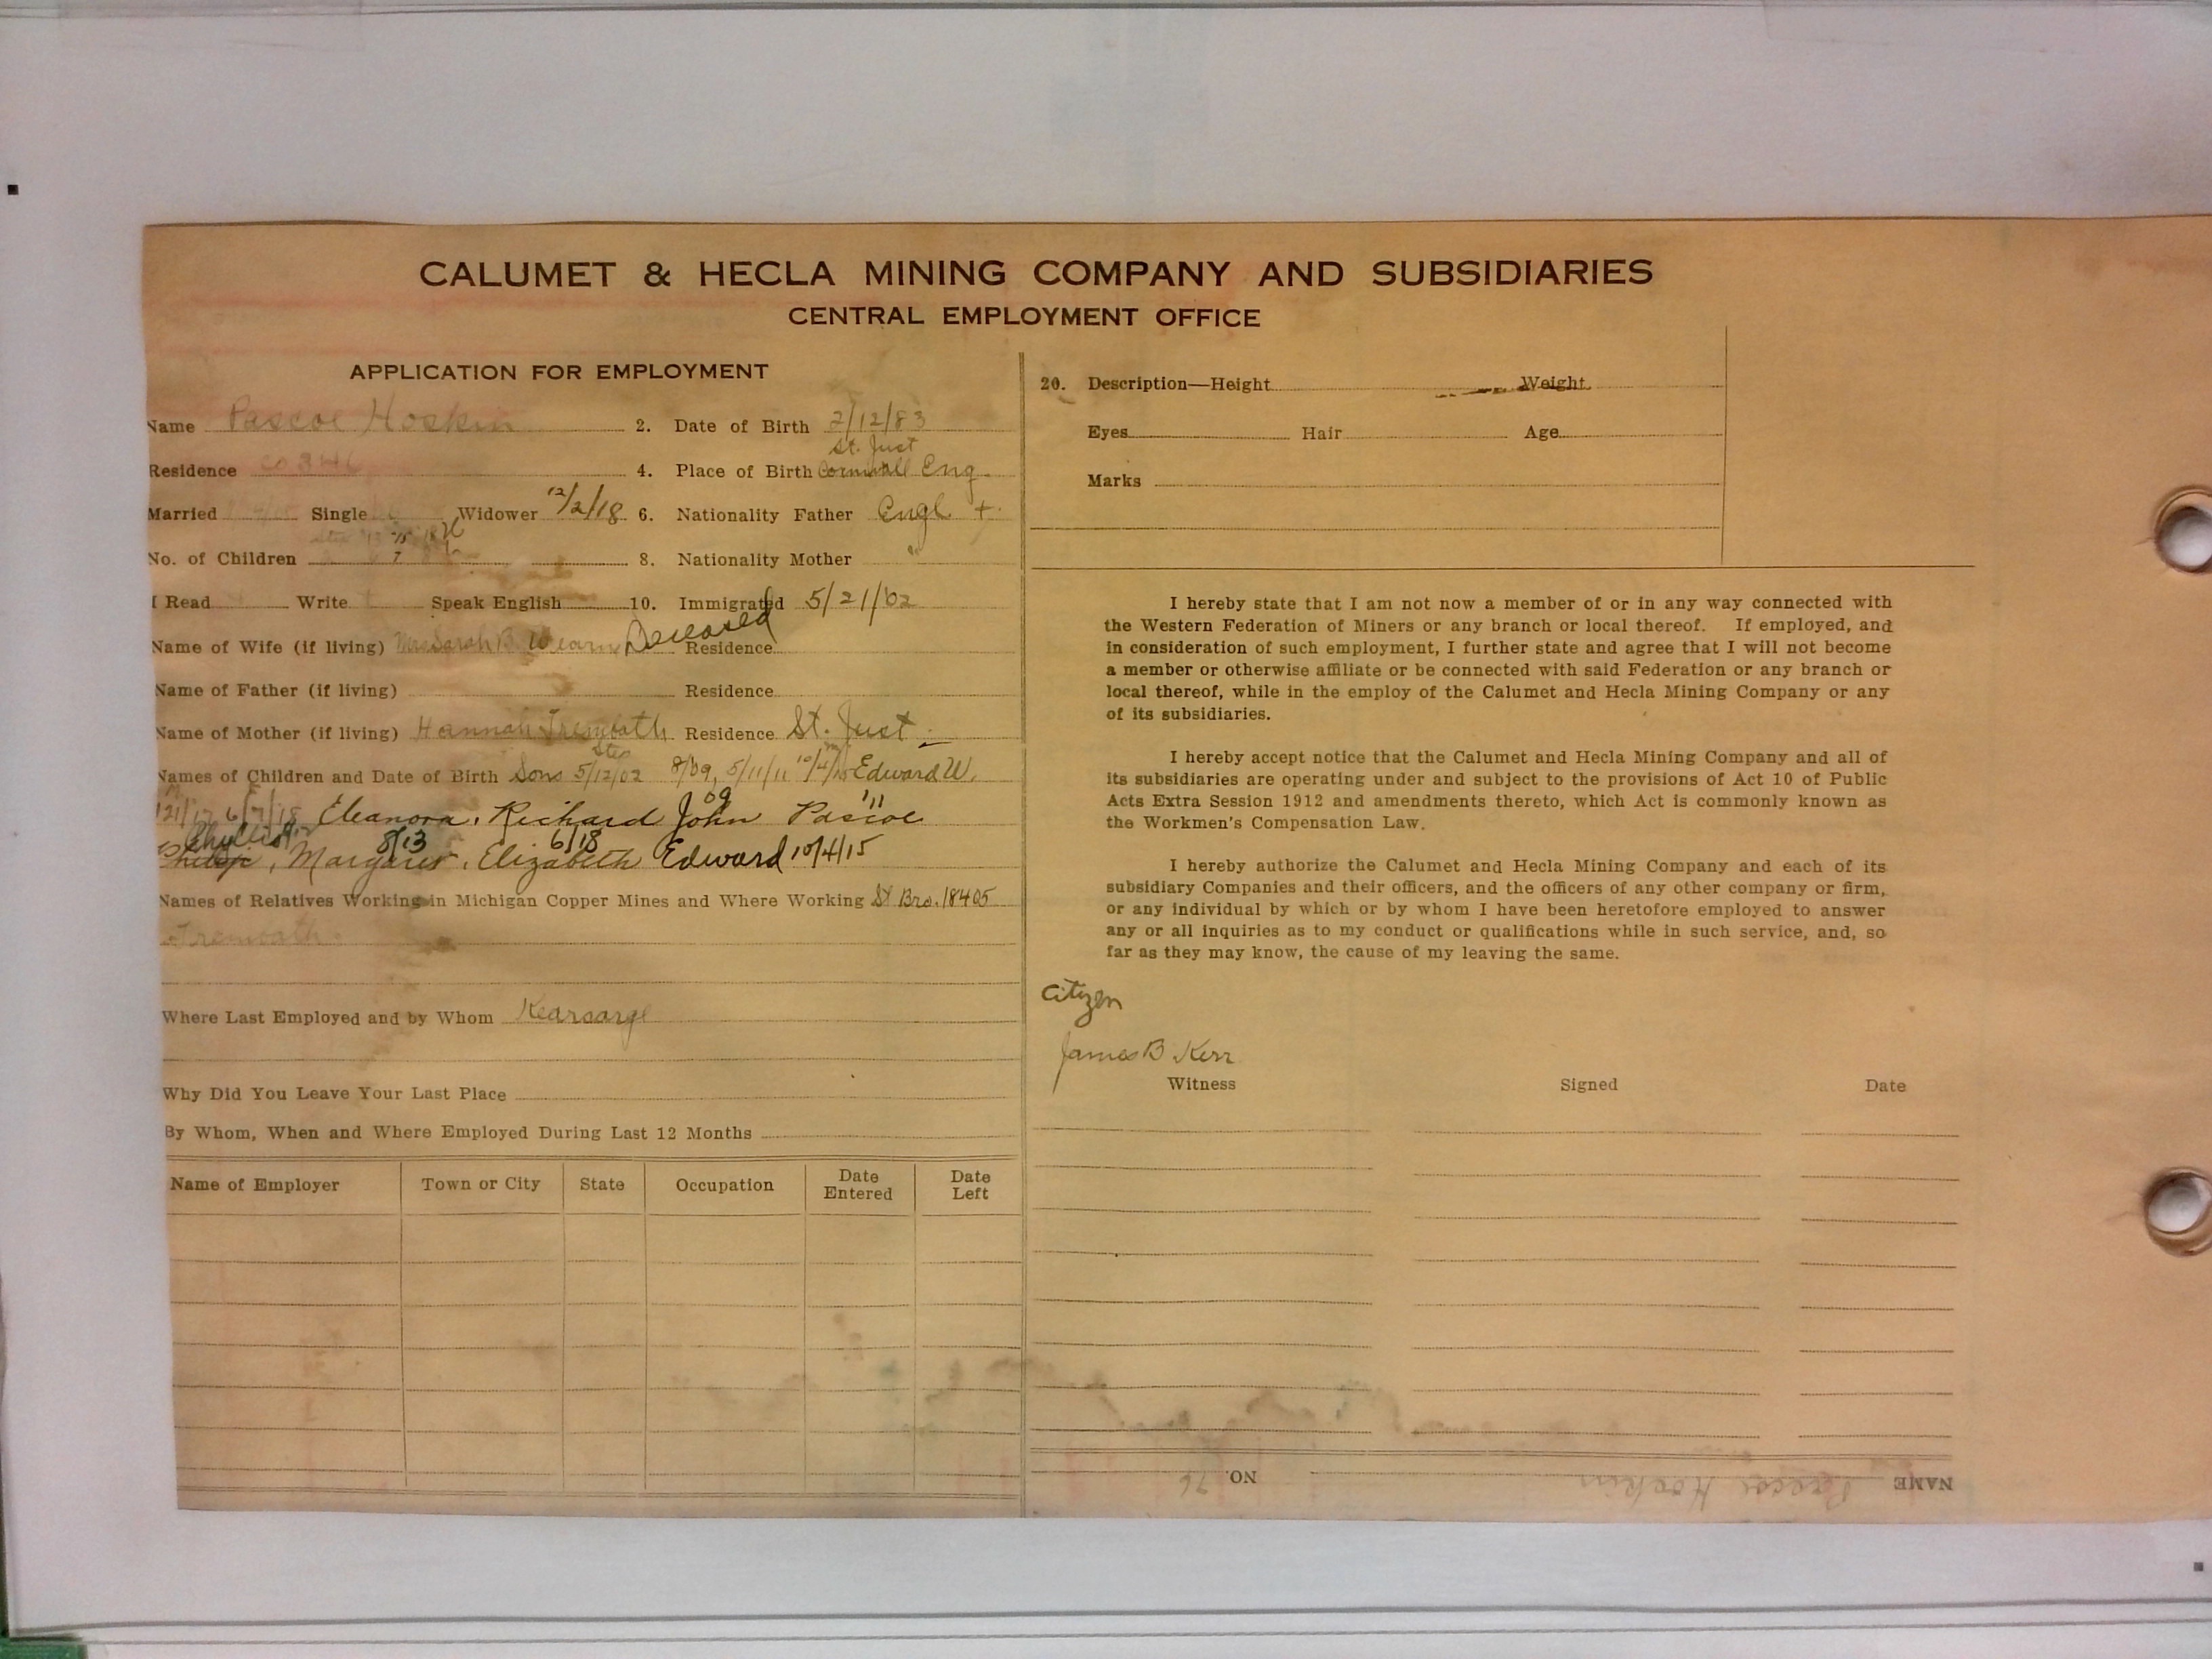 CALUMET & HECLA MINING COMPANY AND SUBSIDIARIES
CENTRAL EMPLOYMENT OFFICE
APPLICATION FOR EMPLOYMENT
Name Pascoe Hoskin 2. Date of Birth 2/12/83
St. Just
Residence 4. Place of Birth Cornwall Eng
Married Single Widower 12/2/18 6. Nationality Father Engl +
No. of Children 7 8. Nationality Mother "
I Read Write Speak English 10. Immigrated 5/21/02
Name of Wife (if living) Mrs Sarah B. Deceased Residence
Name of Father (if living) Residence
Name of Mother (if living) Hannah Trembath Residence St. Just
Names of Children and Date of Birth Sons 5/12/02 8/09, 5/11/11 Edward W.
6/7/18 Eleanora, Richard John 09 Pascoe '11
Phyllis, Margaret 8/13, Elizabeth 6/18 Edward 10/4/15
Names of Relatives Working in Michigan Copper Mines and Where Working St Bro. 18405
Trembath
Where Last Employed and by Whom Kearsarge
Why Did You Leave Your Last Place
By Whom, When and Where Employed During Last 12 Months
Name of Employer Town or City State Occupation Date Entered Date Left
20. Description—Height Weight
Eyes Hair Age
Marks
I hereby state that I am not now a member of or in any way connected with
the Western Federation of Miners or any branch or local thereof. If employed, and
in consideration of such employment, I further state and agree that I will not become
a member or otherwise affiliate or be connected with said Federation or any branch or
local thereof, while in the employ of the Calumet and Hecla Mining Company or any
of its subsidiaries.
I hereby accept notice that the Calumet and Hecla Mining Company and all of
its subsidiaries are operating under and subject to the provisions of Act 10 of Public
Acts Extra Session 1912 and amendments thereto, which Act is commonly known as
the Workmen's Compensation Law.
I hereby authorize the Calumet and Hecla Mining Company and each of its
subsidiary Companies and their officers, and the officers of any other company or firm,
or any individual by which or by whom I have been heretofore employed to answer
any or all inquiries as to my conduct or qualifications while in such service, and, so
far as they may know, the cause of my leaving the same.
Citizen
James B Kerr
Witness Signed Date
NAME Pascoe Hoskin NO. 76